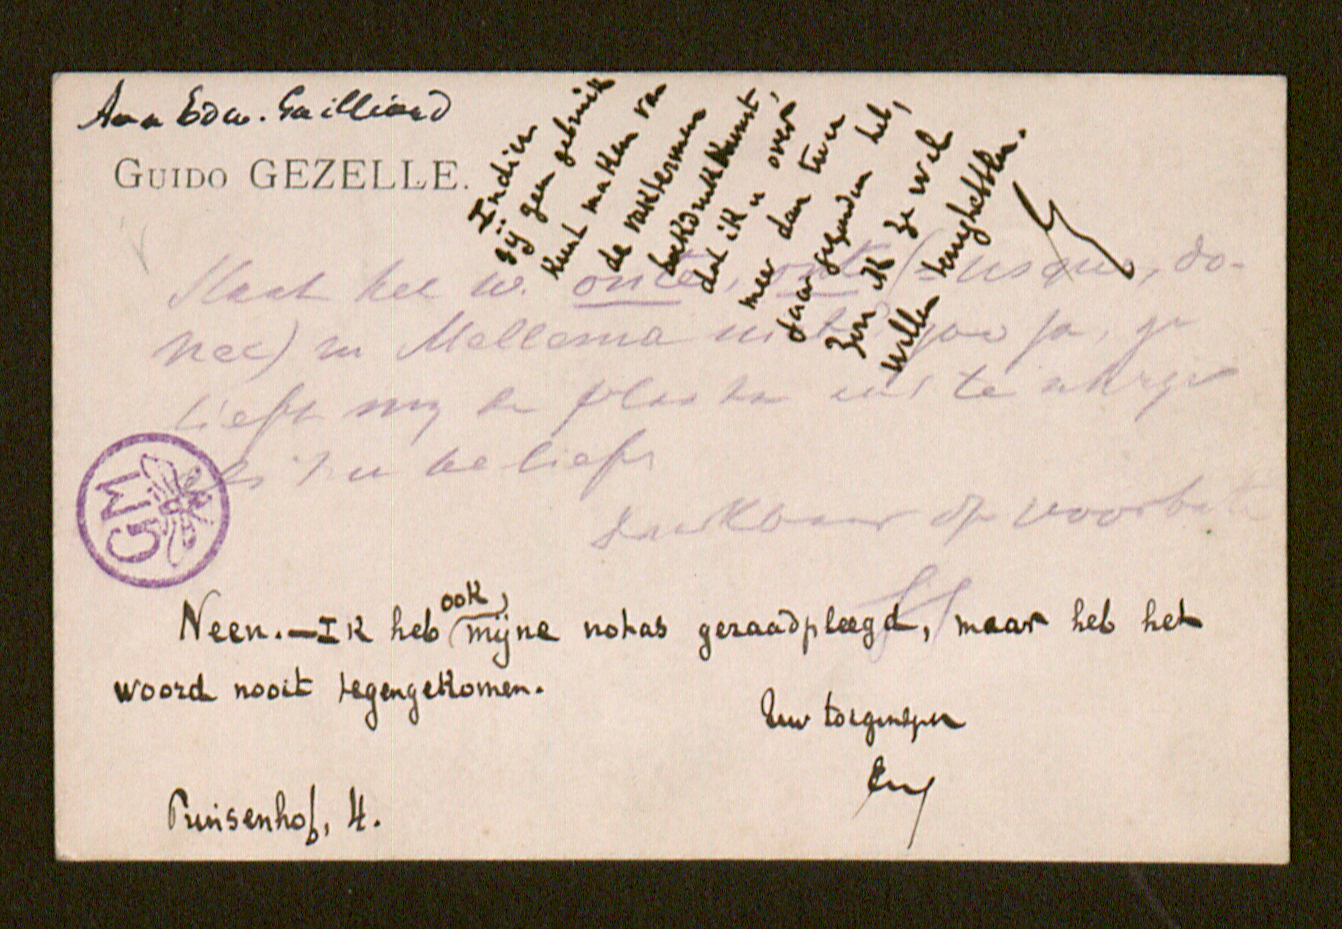 Aan Edw. Gailliard
GUIDO GEZELLE.
Indien
gij geen gebruik
kunt maken van
de vaktermen
boekdrukkunst,
dat ik u over
meer dan twee
jaar gezonden heb,
zou ik ze wel
willen terughebben.
Staat het w. onte, ont (= usque, do-
nec) in Mellema niet? zoo ja, ge
lieft mij de plaatse uit te schrijven
als 't u belieft
dankbaar op voorbate
GG
GM
Neen. — Ik heb ook, mijne notas geraadpleegd, maar heb het
woord nooit tegengekomen.
Uw toegenegen
Prinsenhof, 4.